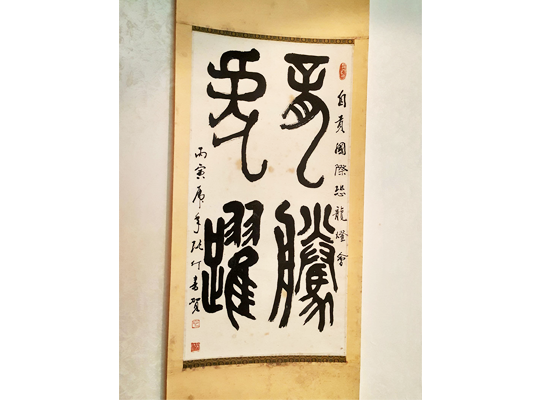 自貢國際恐龍燈會
龍騰
虎躍
丙寅虎年張仃書賀